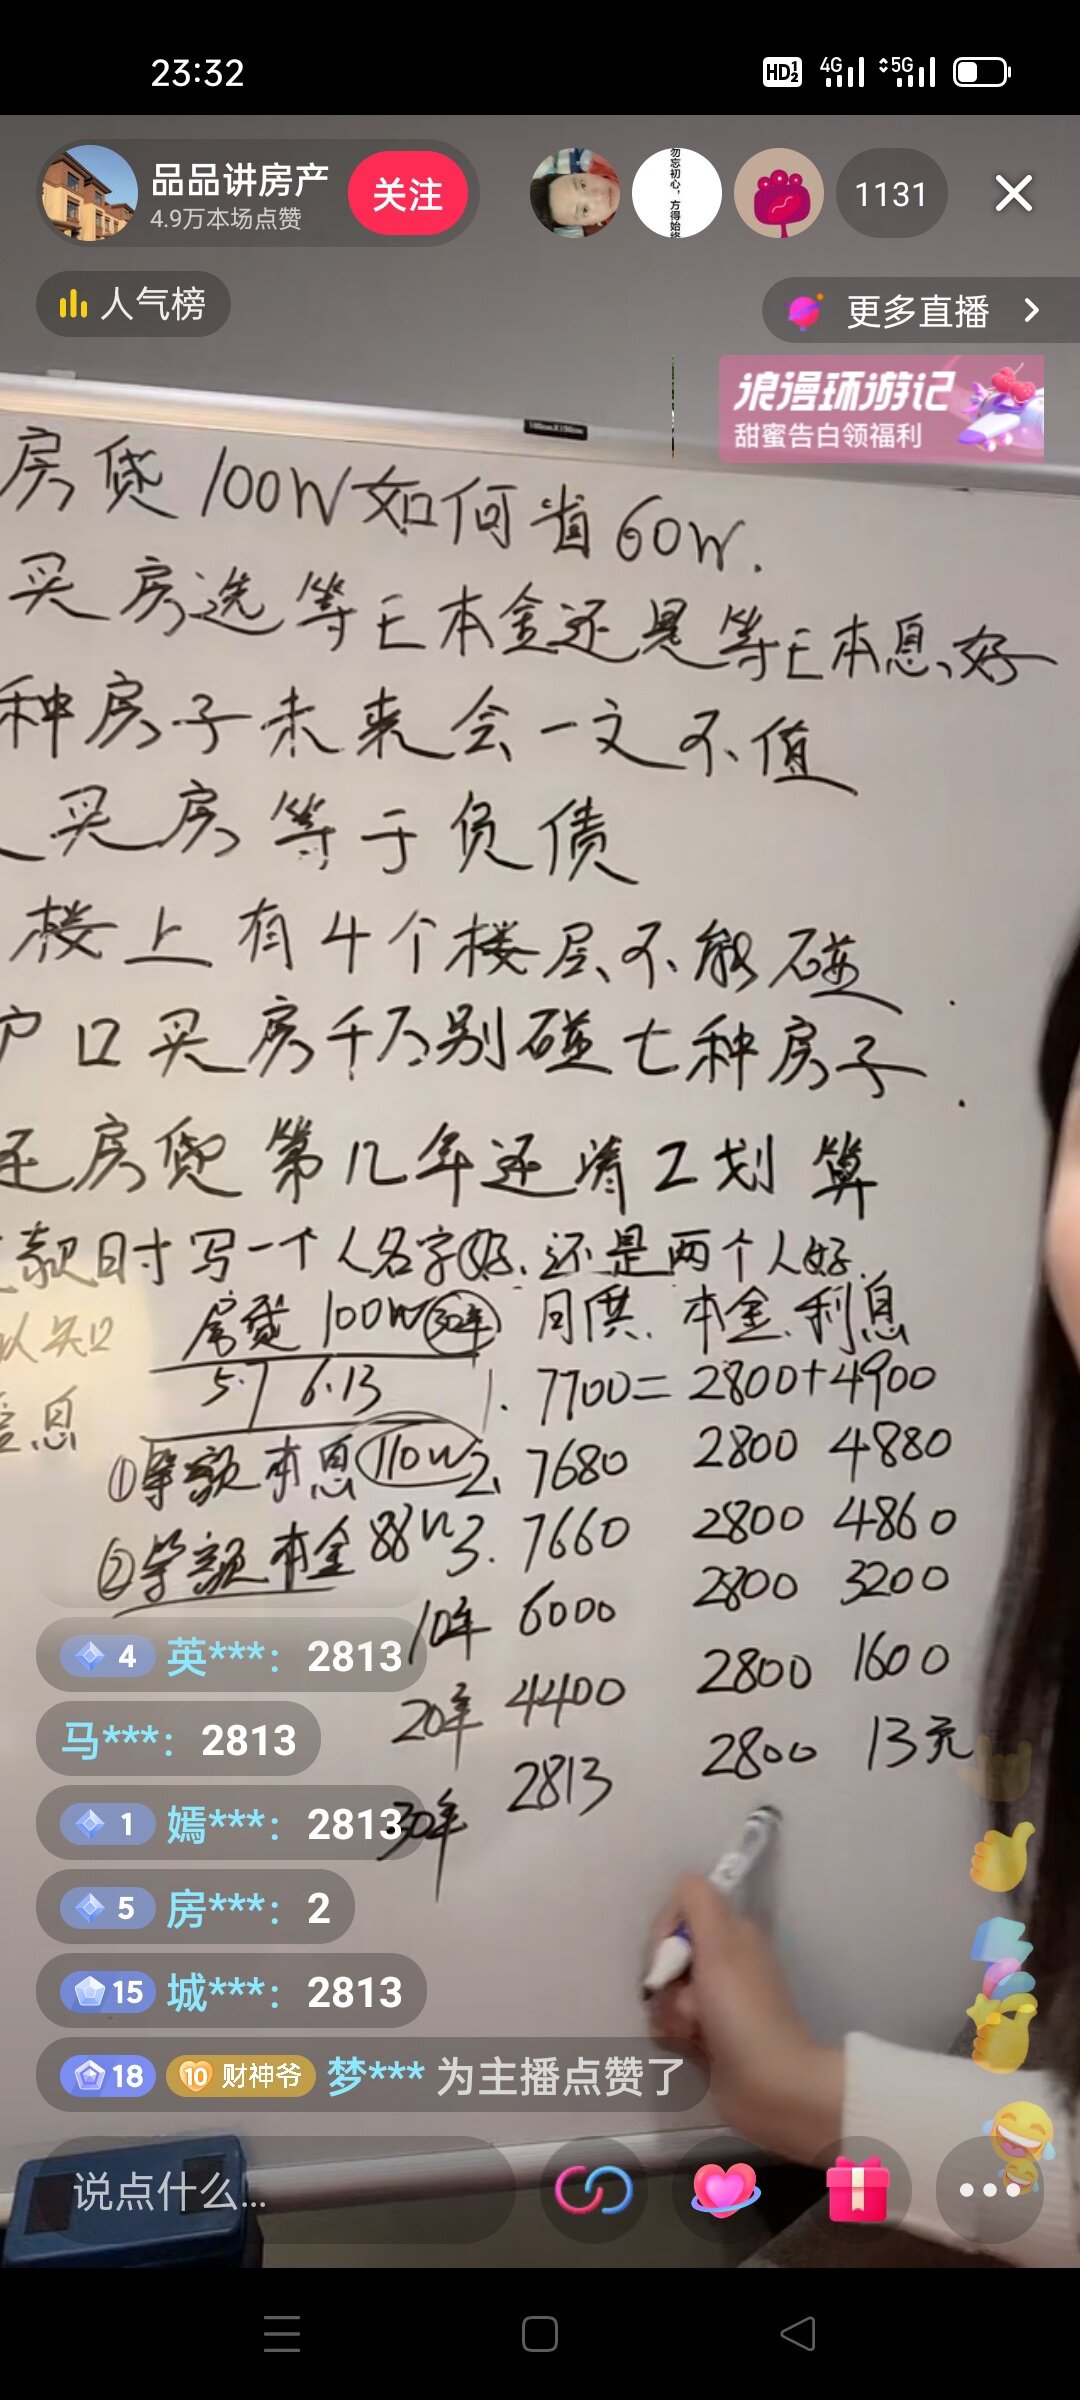 23:32
HD 1 2 4G 5G
品品讲房产
4.9万本场点赞
关注
勿忘初心，方得始终
1131
人气榜
更多直播
浪漫环游记
甜蜜告白领福利
房贷100W如何省60W.
买房选等E本金还是等E本息好
种房子未来会一文不值
买房等于负债
楼上有4个楼层不能碰
户口买房千万别碰七种房子
还房贷第几年还清工划算
款时写一个人名字好.还是两个人好
房贷100W 30年 月供. 本金. 利息
5.7 6.13
1. 7700= 2800+4900
①等额本息 110W 2、7680 2800 4880
②等额本金 88W 3. 7660 2800 4860
10年 6000 2800 3200
20年 4400 2800 1600
30年 2813 2800 13元
息
4 英***： 2813
马***： 2813
1 嫣***： 2813
5 房***： 2
15 城***： 2813
18 10 财神爷 梦*** 为主播点赞了
说点什么...